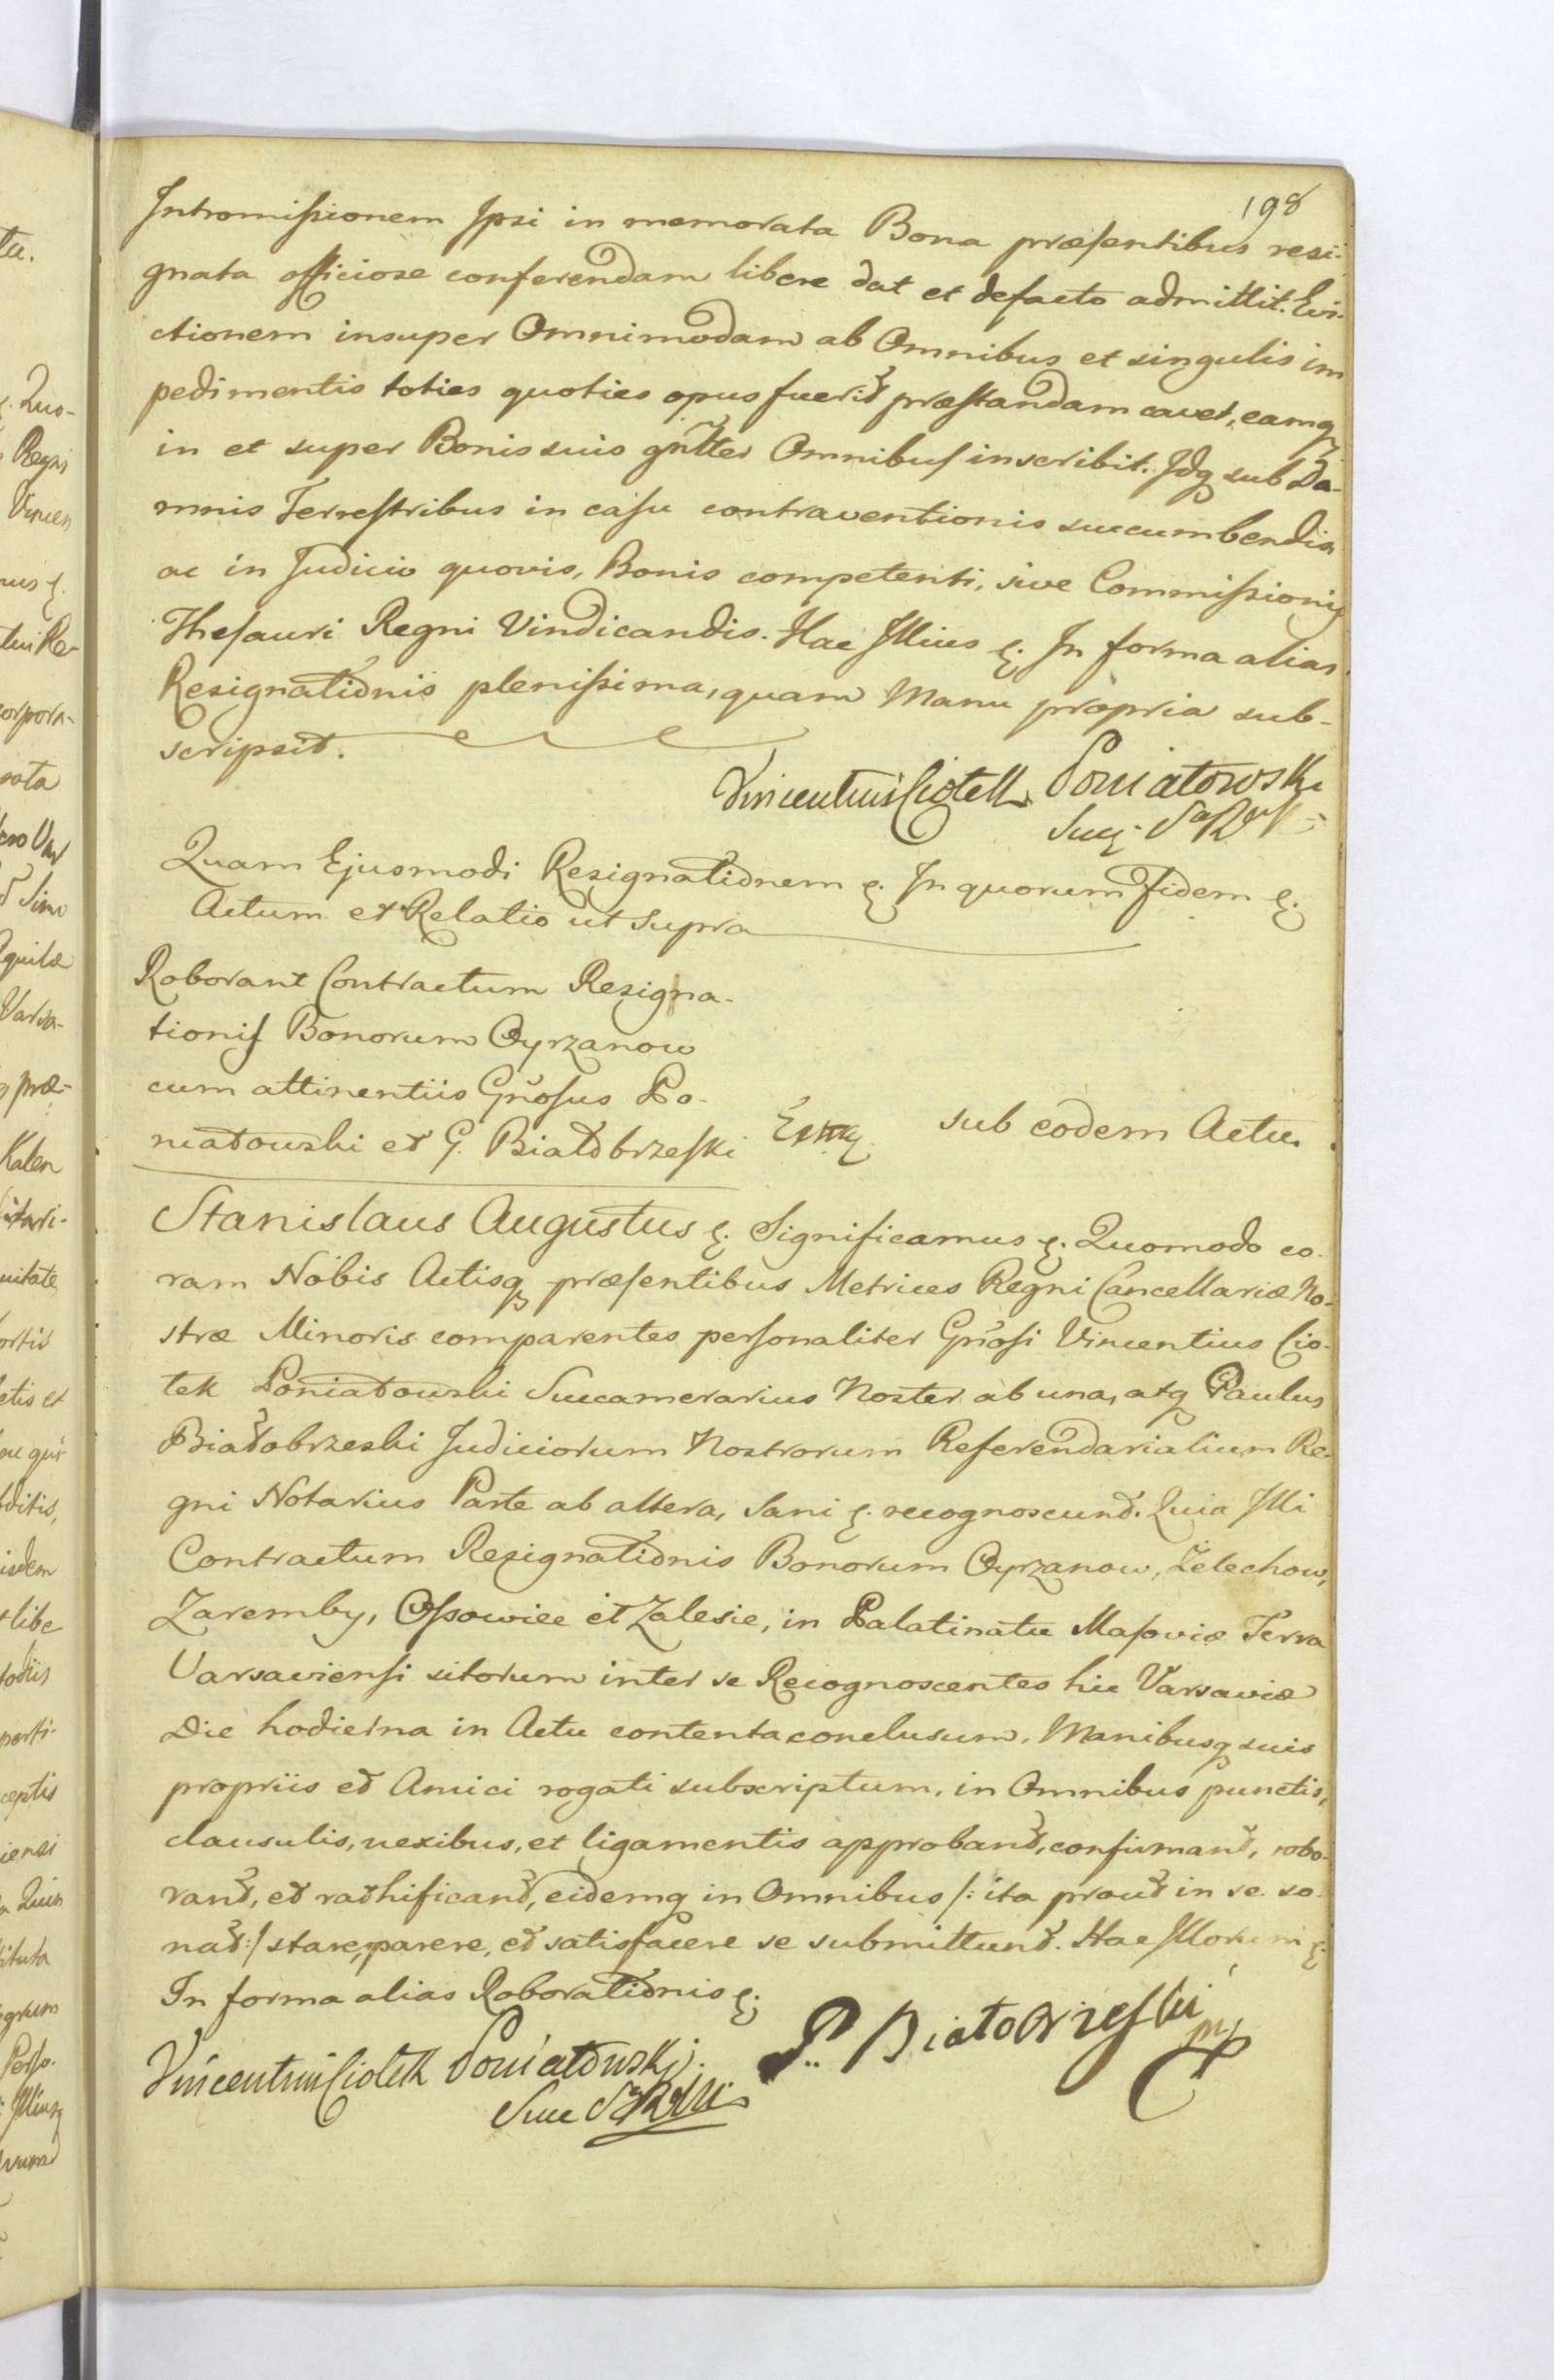 198
Intromissionem Ipsi in memorata Bona præsentibus resi-
gnata officiose conferendam libere dat et defacto admittit. Evi-
ctionem insuper Omnimodam ab Omnibus et singulis im
pedimentis toties quoties opus fuerit præstandam cavet, eamq
in et super Bonis suis gnŕtter Omnibus inscribit. Idq sub Da-
mnis Terrestribus in casu contraventionis succumbendis
ac in Judicio quovis, Bonis competenti, sive Commissionis
Thesauri Regni Vindicandis. Hac Illius &. In forma alias
Resignationis plenissima, quam Manu propria sub-
scripsit.
Vincentius Ciotek Poniatowski
Quam Ejusmodi Resignationem &. In quorum Fidem &.
Actum et Relatio ut Supra
Roborant Contractum Resigna-
tionis Bonorum Oyrzanow
cum attinentiis Gnosus Po-
niatowski et G. Białobrzeski
sub eodem Actu.
Stanislaus Augustus &. Significamus &. Quomodo co-
ram Nobis Actisq præsentibus Metrices Regni Cancellariæ No-
stræ Minoris comparentes personaliter Gnosi Vincentius Cio-
tek Poniatowski Succamerarius Noster ab una, atq Paulus
Białobrzeski Judiciorum Nostrorum Referendarialium Re-
gni Notarius Parte ab altera, Sani &. recognoscunt. Quia Illi
Contractum Resignationis Bonorum Oyrzanow, Żelechow,
Zaremby, Ossowiec et Zalesie, in Palatinatu Masoviæ Terra
Varsaviensi sitorum inter se Recognoscentes hic Varsaviæ
Die hodierna in Actu contenta conclusum, Manibusq suis
propriis et Amici rogati subscriptum, in Omnibus punctis,
clausulis, nexibus, et ligamentis approbant, confirmant, robo-
rant, et rathificant, eidemq in Omnibus /: ita prout in se so-
nat :/ stare, parere, et satisfacere se submittunt. Hac Illorum &.
In forma alias Roborationis &.
Vincentius Ciotek Poniatowski
P. Białobrzeski
mp